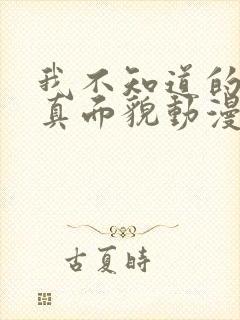 我不知道的
真面貌動漫
古夏時